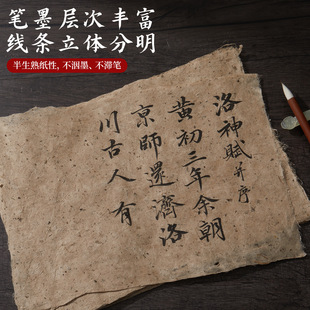 笔墨层次丰富
线条立体分明
半生熟纸性，不洇墨、不滞笔
洛神賦並序
黄初三年余朝
京師還濟洛
川古人有